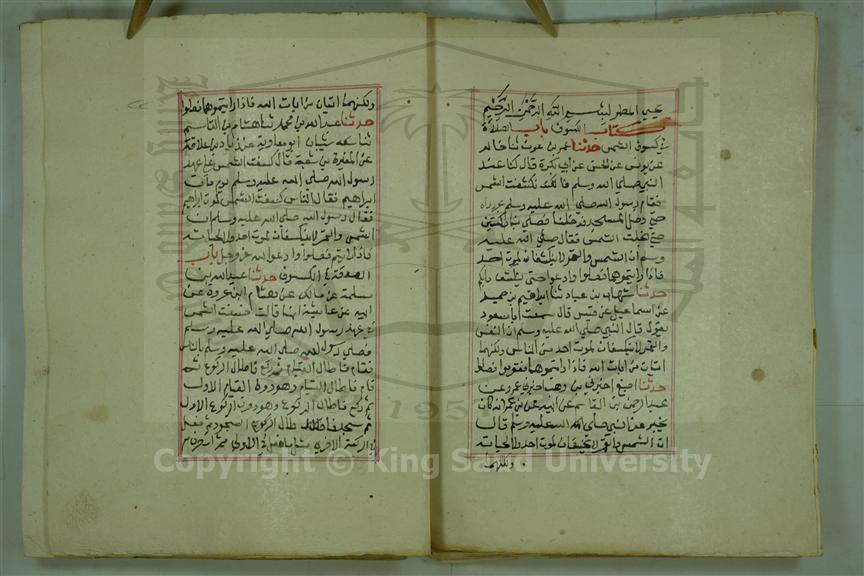 عن المطر بسم الله الرحمن الرحيم
كتاب الكسوف باب الصلاة
في كسوف الشمس حدثنا عمرو بن عون ثنا خالد
عن يونس عن الحسن عن ابي بكرة قال كنا عند
النبي صلى الله وسلم فانكسفت الشمس
فقام رسول الله صلى الله عليه وسلم يجر رداه
حتى دخل المسجد فدخلنا فصلى بنا ركعتين
حتى انجلت الشمس فقال صلى الله عليه
وسلم ان الشمس والقمر لا ينكسفان لموت احد
فاذا رايتموهما فصلوا وادعوا حتى ينكشف ما بكم
حدثنا شهاب بن عباد ثنا ابراهيم بن حميد
عن اسماعيل عن قيس قال سمعت ابا مسعود
يقول قال النبي صلى الله عليه وسلم ان الشمس
والقمر لا ينكسفان لموت احد من الناس ولكنهما
ايتان من ايات الله فاذا رايتموهما فقوموا فصلوا
حدثنا اصبغ اخبرني بن وهب اخبرني عمرو عن
عبد الرحمن بن القاسم عن ابيه عن بن عمر انه كان
يخبر عن النبي صلى الله عليه وسلم قال
ان الشمس والقمر لا يخسفان لموت احد ولا لحياته
ولكنهما
ولكنهما ايتان من ايات الله فاذا رايتموهما فصلوا
حدثنا عبد الله بن محمد ثنا هشام بن القاسم
ثنا شيبان ابو معاوية عن زياد بن علاقة
عن المغيرة بن شعبة قال كسفت الشمس على عهد
رسول الله صلى الله عليه وسلم يوم مات
ابراهيم فقال الناس كسفت الشمس لموت ابراهيم
فقال رسول الله صلى الله عليه وسلم ان
الشمس والقمر لا ينكسفان لموت احد ولا لحياته
فاذا رايتم فصلوا وادعوا الله عز وجل باب
الصدقة في الكسوف حدثنا عبد الله بن
مسلمة عن مالك عن هشام ابن عروة عن
ابيه عن عائشة انها قالت خسفت الشمس
في عهد رسول الله صلى الله عليه وسلم
فصلى رسول الله صلى الله عليه وسلم بالناس
فقام فاطال القيام ثم ركع فاطال الركوع ثم
قام فاطال القيام وهو دون القيام الاول
ثم ركع فاطال الركوع وهو دون الركوع الاول
ثم سجد فاطال السجود ثم فعل
في الركعة الاخرى مثل ما فعل في الاولى ثم انصرف
1957
Copyright © King Saud University